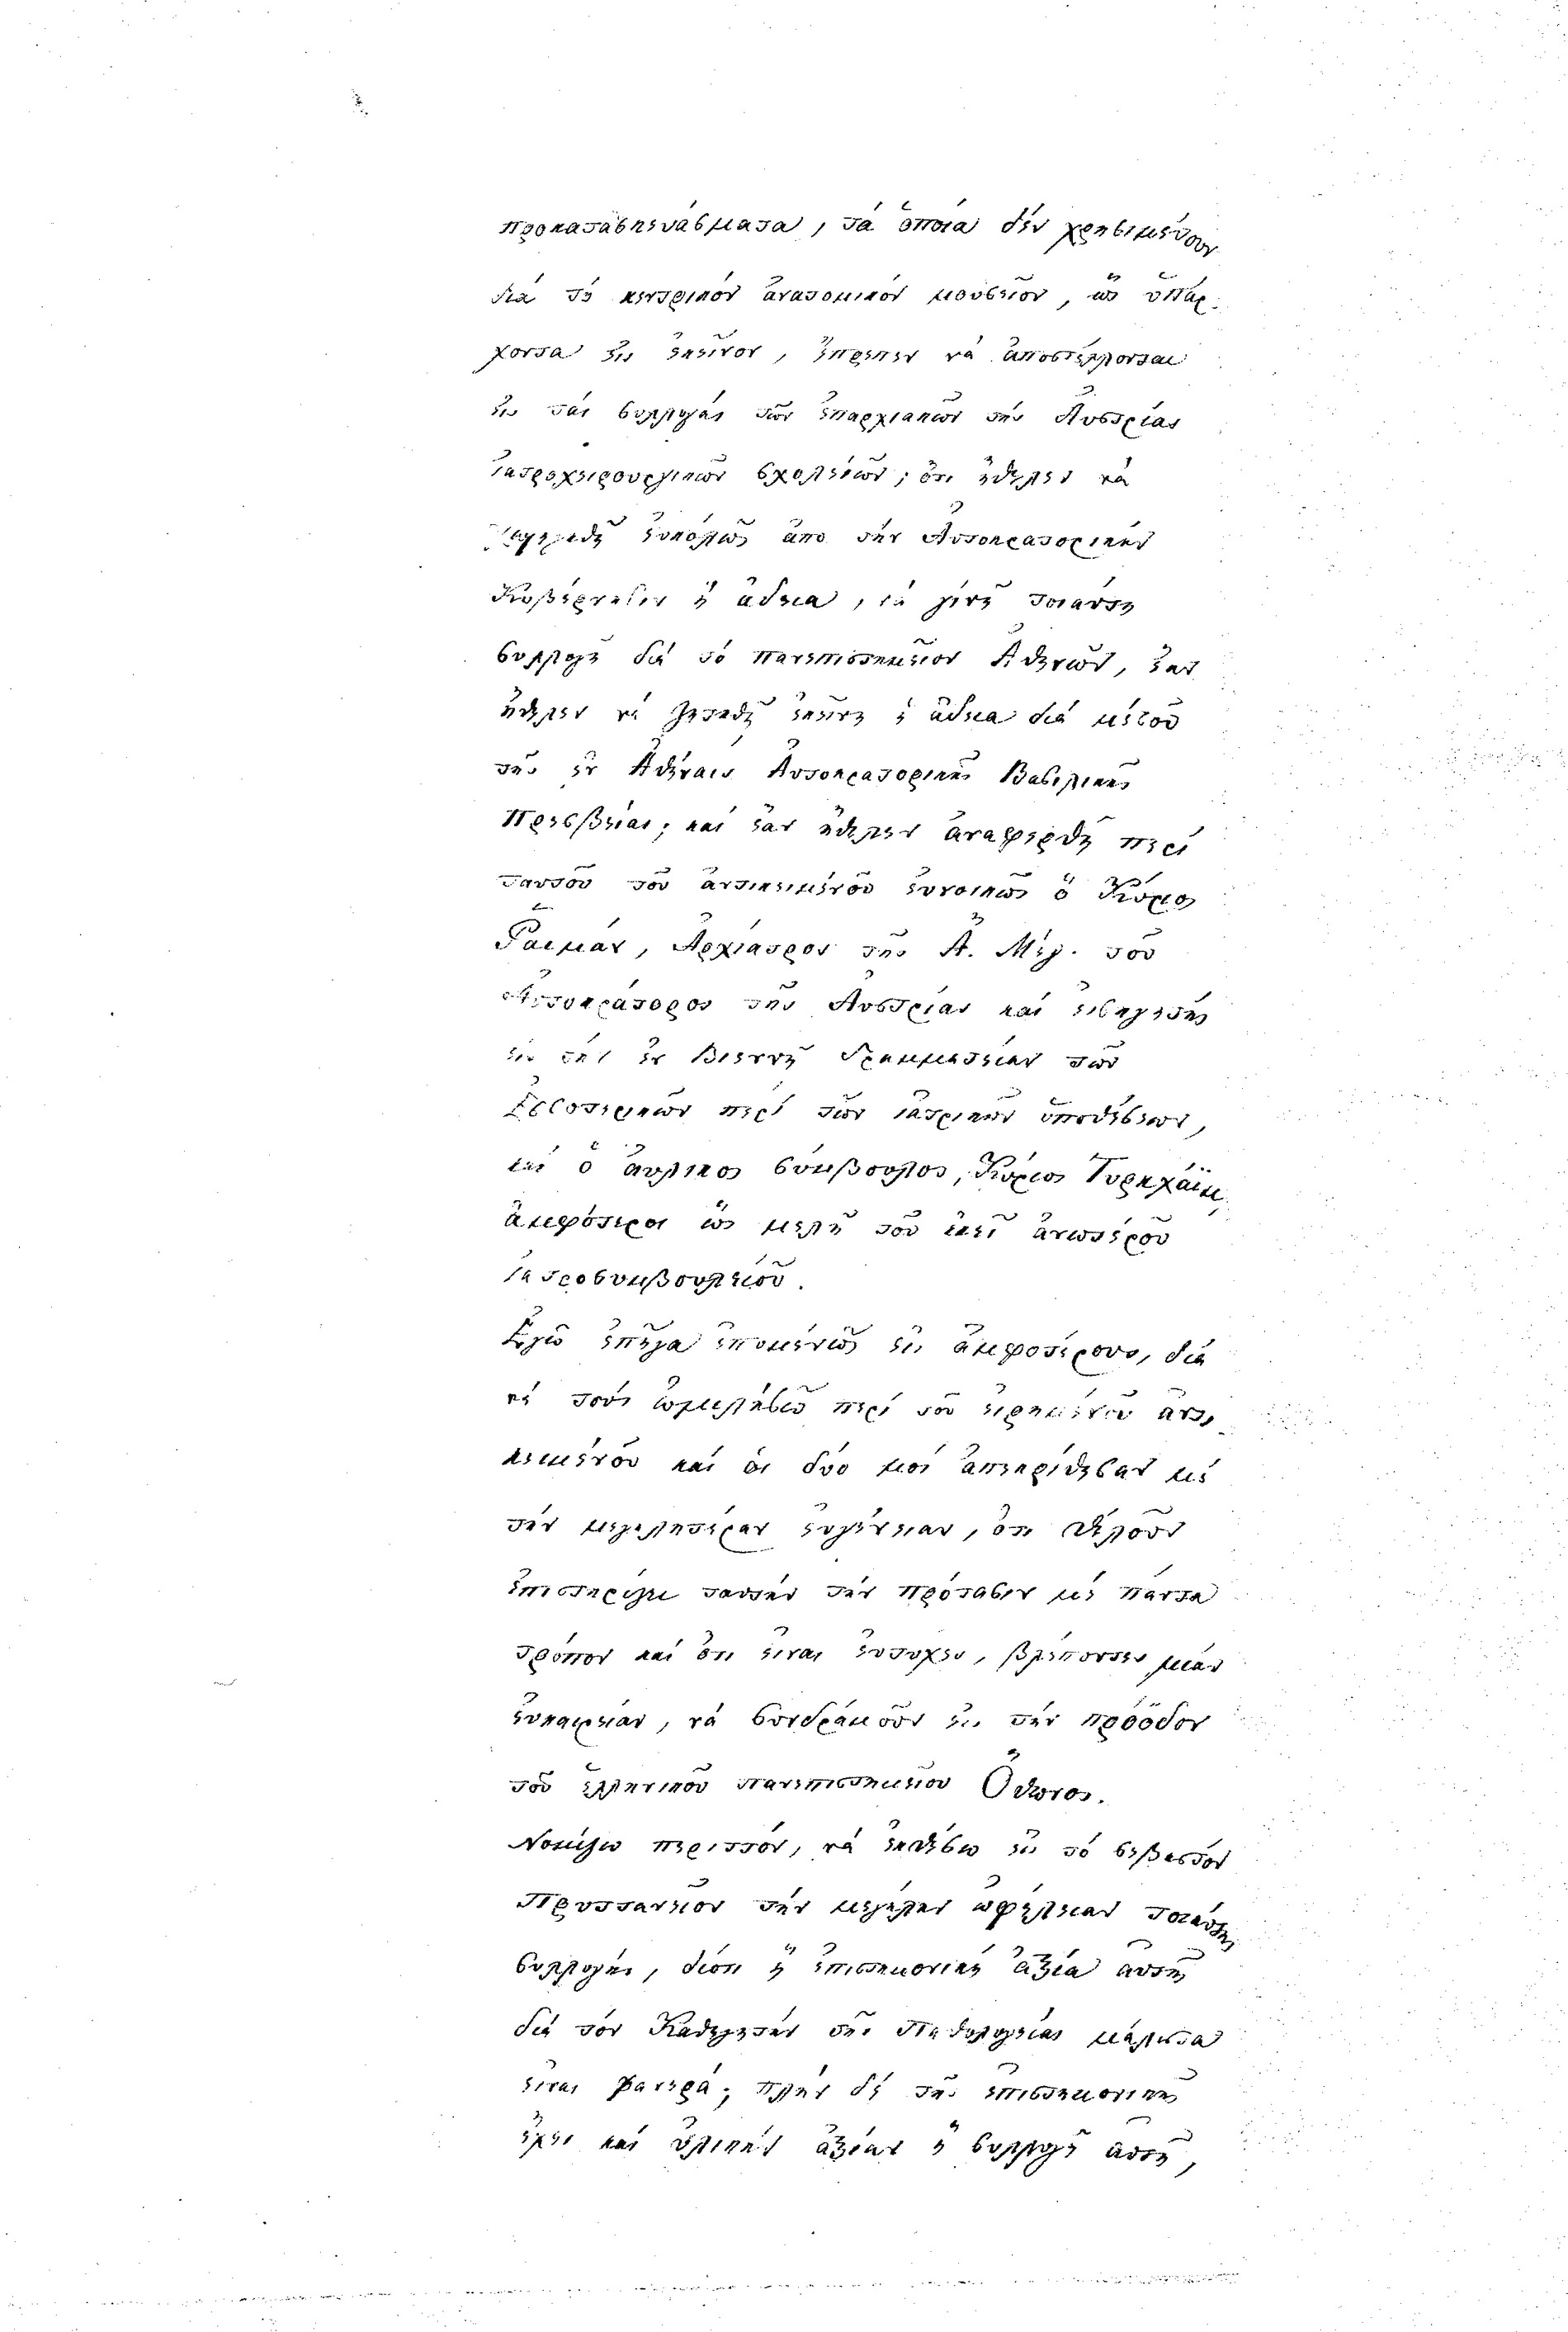 προκατασκευάσματα, τά ὁποῖα δέν χρησιμεύουν
διά τό κεντρικόν ἀνατομικόν μουσεῖον, ὡς ὑπάρ-
χοντα εἰς ἐκεῖνον, ἔπρεπεν νά ἀποστέλλονται
εἰς τάς συλλογάς τῶν ἐπαρχιακῶν τῆς Αὐστρίας
ἰατροχειρουργικῶν σχολείων; ὅτι ἤθελεν νά
εὐκόλως ἀπό τήν Αὐτοκρατορικήν
Κυβέρνησιν ἡ ἄδεια, νά γίνῃ τοιαύτη
συλλογή διά τό πανεπιστημεῖον Ἀθηνῶν, ἐάν
ἤθελεν νά ζητηθῇ ἐκείνη ἡ ἄδεια διά μέσου
τῆς ἐν Ἀθήναις Αὐτοκρατορικῆς Βασιλικῆς
Πρεσβείας; καί ἐάν ἤθελεν ἀναφερθῇ περί
ταυτοῦ τοῦ ἀντικειμένου εὐνοικῶς ὁ Κύριος
Ῥαιμάν, Ἀρχίατρος τῆς Α. Μεγ. τοῦ
Αὐτοκράτορος τῆς Αὐστρίας καί εἰσηγητής
εἰς τήν ἐν Βιέννῃ Γραμματείαν τῶν
Ἐσωτερικῶν περί τῶν ἰατρικῶν ὑποθέσεων,
καί ὁ αὐλικός σύμβουλος, Κύριος Τυρκχάϊμ,
ἀμφότεροι ὡς μέλη τοῦ ἐκεῖ ἀνωτέρου
ἰατροσυμβουλείου.
Ἐγώ ἐπῆγα ἑπομένως εἰς ἀμφοτέρους, διά
νά τούς ὡμιλήσω περί τοῦ εἰρημένου ἀντι-
κειμένου καί οἱ δύο μοί ἀπεκρίθησαν μέ
τήν μεγαλητέραν εὐγένειαν, ὅτι θέλουν
ἐπιστηρίξει ταυτήν τήν πρότασιν μέ πάντα
τρόπον καί ὅτι εἶναι εὐτυχεῖς, βλέποντες μίαν
εὐκαιρείαν, νά συνδράμουν εἰς τήν πρόοδον
τοῦ ἑλληνικοῦ πανεπιστημείου Ὄθωνος.
Νομίζω περιττόν, νά ἐκθέσω εἰς τό σεβαστόν
Πρυτανεῖον τήν μεγάλην ὠφέλειαν τοιαύτης
συλλογῆς, διότι ἡ ἐπιστημονική ἀξία αὐτῆς
διά τόν Καθηγητήν τῆς Παθολογείας μάλιστα
εἶναι φανερά; πλήν δέ τῆς ἐπιστημονικῆς
ἔχει καί ὑλικήν ἀξίαν ἡ συλλογή αὐτή,